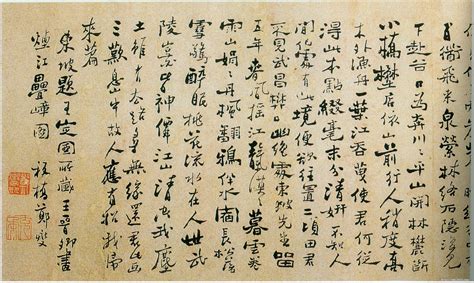 百道飛來泉縈林絡石隱復見
下赴谷口為奔川川平山開林麓斷
小橋埜店依山前行人稍度喬
木外漁舟一葉江吞天使君何從
得此本點綴毫末分清妍不知人
間何處有此境便欲往置二頃田君
不見武昌樊口幽絕處東坡先生留
五年春風搖江天漠漠暮雲卷
雨山娟娟丹楓翻鴉伴水宿長松落
雪驚醉眠桃花流水在人世武
陵豈必皆神仙江山清空我塵
土雖有去路尋無緣還君此畫
三歎息山中故人應有招我歸
來篇
東坡題王定國所藏王晉卿畫
煙江疊嶂圖 板橋鄭燮